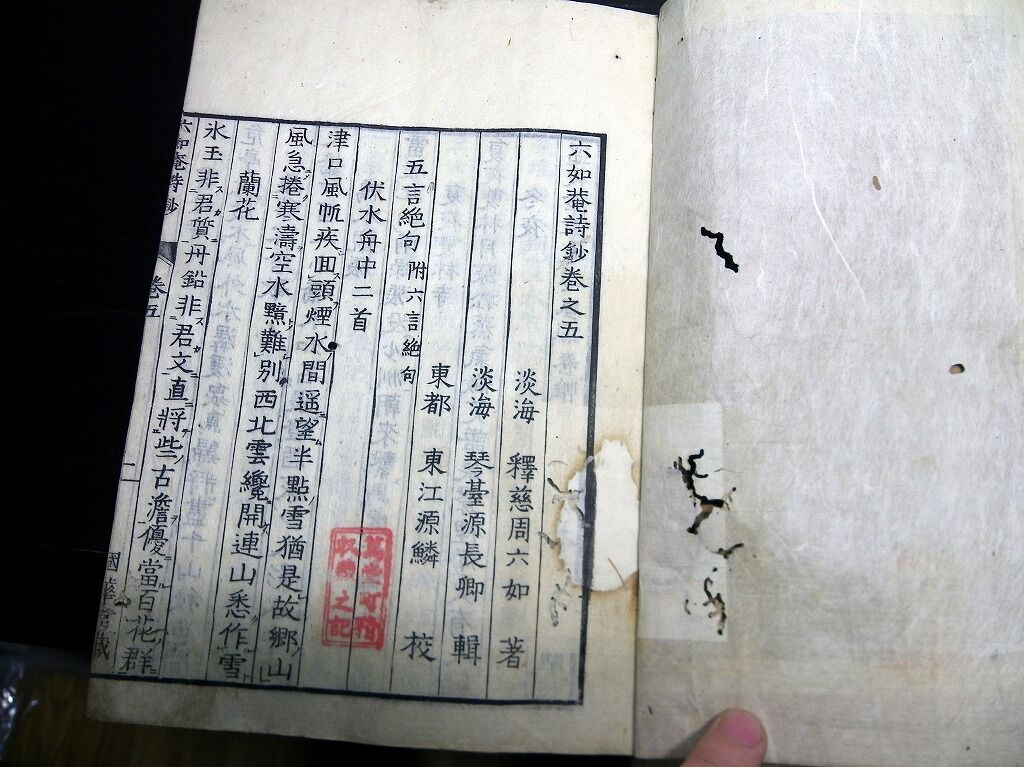 六如菴詩鈔卷之五
淡海 釋慈周六如 著
淡海 琴臺源長卿 輯
東都 東江源鱗 校
五言絶句 附六言絶句
伏水舟中二首
津口風帆疾回頭煙水間遥望半點雪猶是故鄉山
風急捲寒濤空水黯難別西北雲纔開連山悉作雪
蘭花
氷玉非君質丹鉛非君文直將些古澹優當百花群
六如菴詩鈔
卷五
一